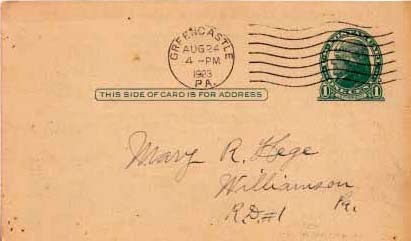 GREENCASTLE
AUG 24
4-PM
1923
PA.
THIS SIDE OF CARD IS FOR ADDRESS
1 1
Mary R. Hege
Williamson
Pa.
R.D.#1